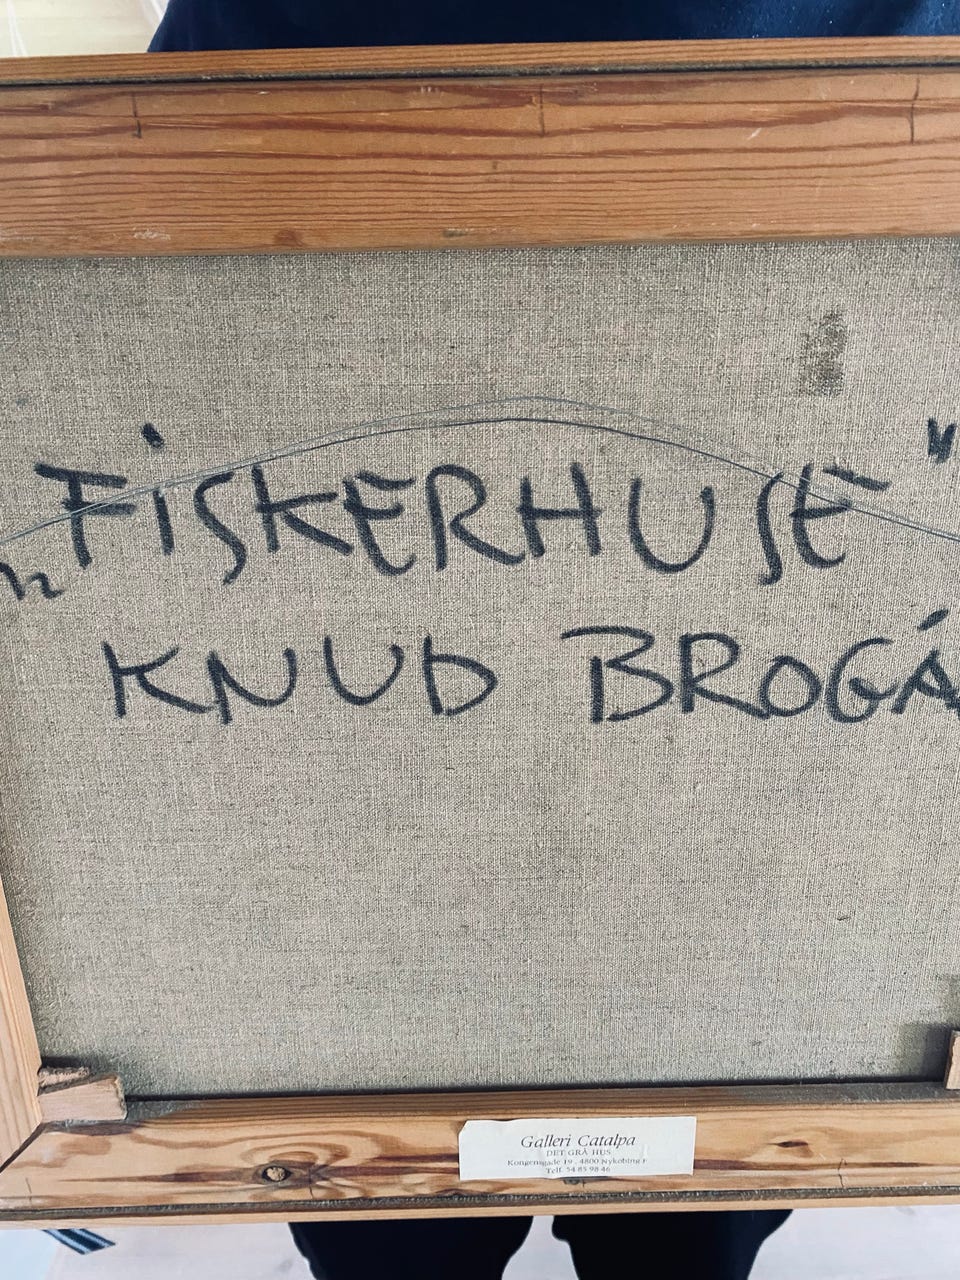 „FISKERHUSE"
KNUD BROGÅ
Galleri Catalpa
DET GRÅ HUS
Kongensgade 19 . 4800 Nykøbing F
Telf. 54 85 98 46